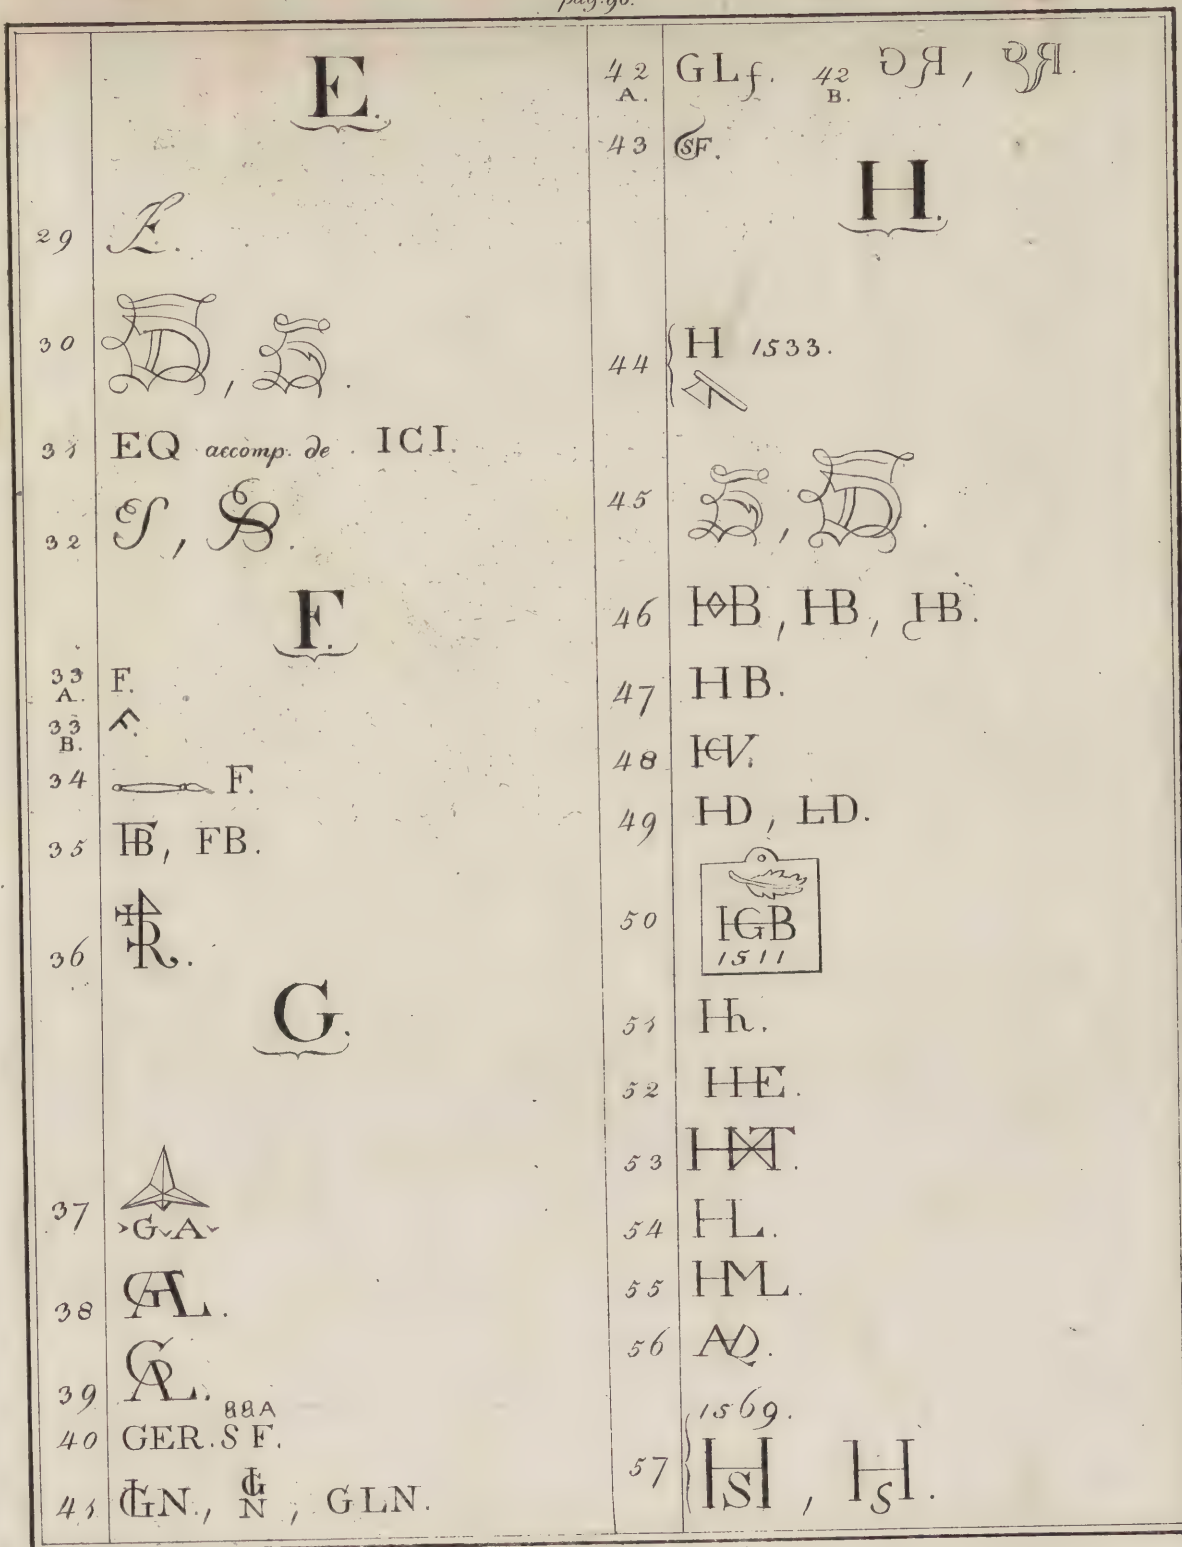 pag. 90.
E.
29 E.
30
31 EQ accomp. de . ICI.
32
F.
33 A. F.
33 B. F.
34 F.
35 FB, FB.
36 R.
G.
37 G A
38 GAL.
39 GAL.
88A
40 GER. S F.
41 GN., GN, GLN.
42 A. GLf. 42 B.
43 SF.
H.
44 H 1533.
45
46 HB, HB, HB.
47 HB.
48 HCV.
49 HD, HD.
50 HGB
1511
51 Hh.
52 HE.
53
54 HL.
55 HML.
56
1569.
57 HS, HS.